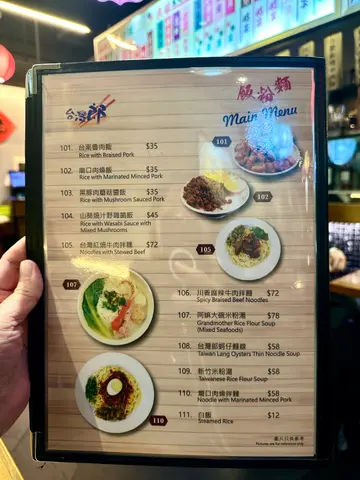 台灣郎
飯粉麵
Main Menu
101. 台東魯肉飯 $35
Rice with Braised Pork
102. 嘴口肉燥飯 $35
Rice with Marinated Minced Pork
103. 黑豚肉蘑菇醬飯 $35
Rice with Mushroom Sauced Pork
104. 山葵燒汁野雜菌飯 $45
Rice with Wasabi Sauce with
Mixed Mushrooms
105. 台灣紅燒牛肉拌麵 $72
Noodles with Stewed Beef
101
102
105
107
106. 川香麻辣牛肉拌麵 $72
Spicy Braised Beef Noodles
107. 阿嫲大碗米粉湯 $78
Grandmother Rice Flour Soup
(Mixed Seafoods)
108. 台灣郎蚵仔麵線 $58
Taiwan Lang Oysters Thin Noodle Soup
109. 新竹米粉湯 $58
Taiwanese Rice Flour Soup
110. 嘴口肉燥拌麵 $58
Noodle with Marinated Minced Pork
111. 白飯 $12
Steamed Rice
110
圖片只供參考
Pictures are for reference only